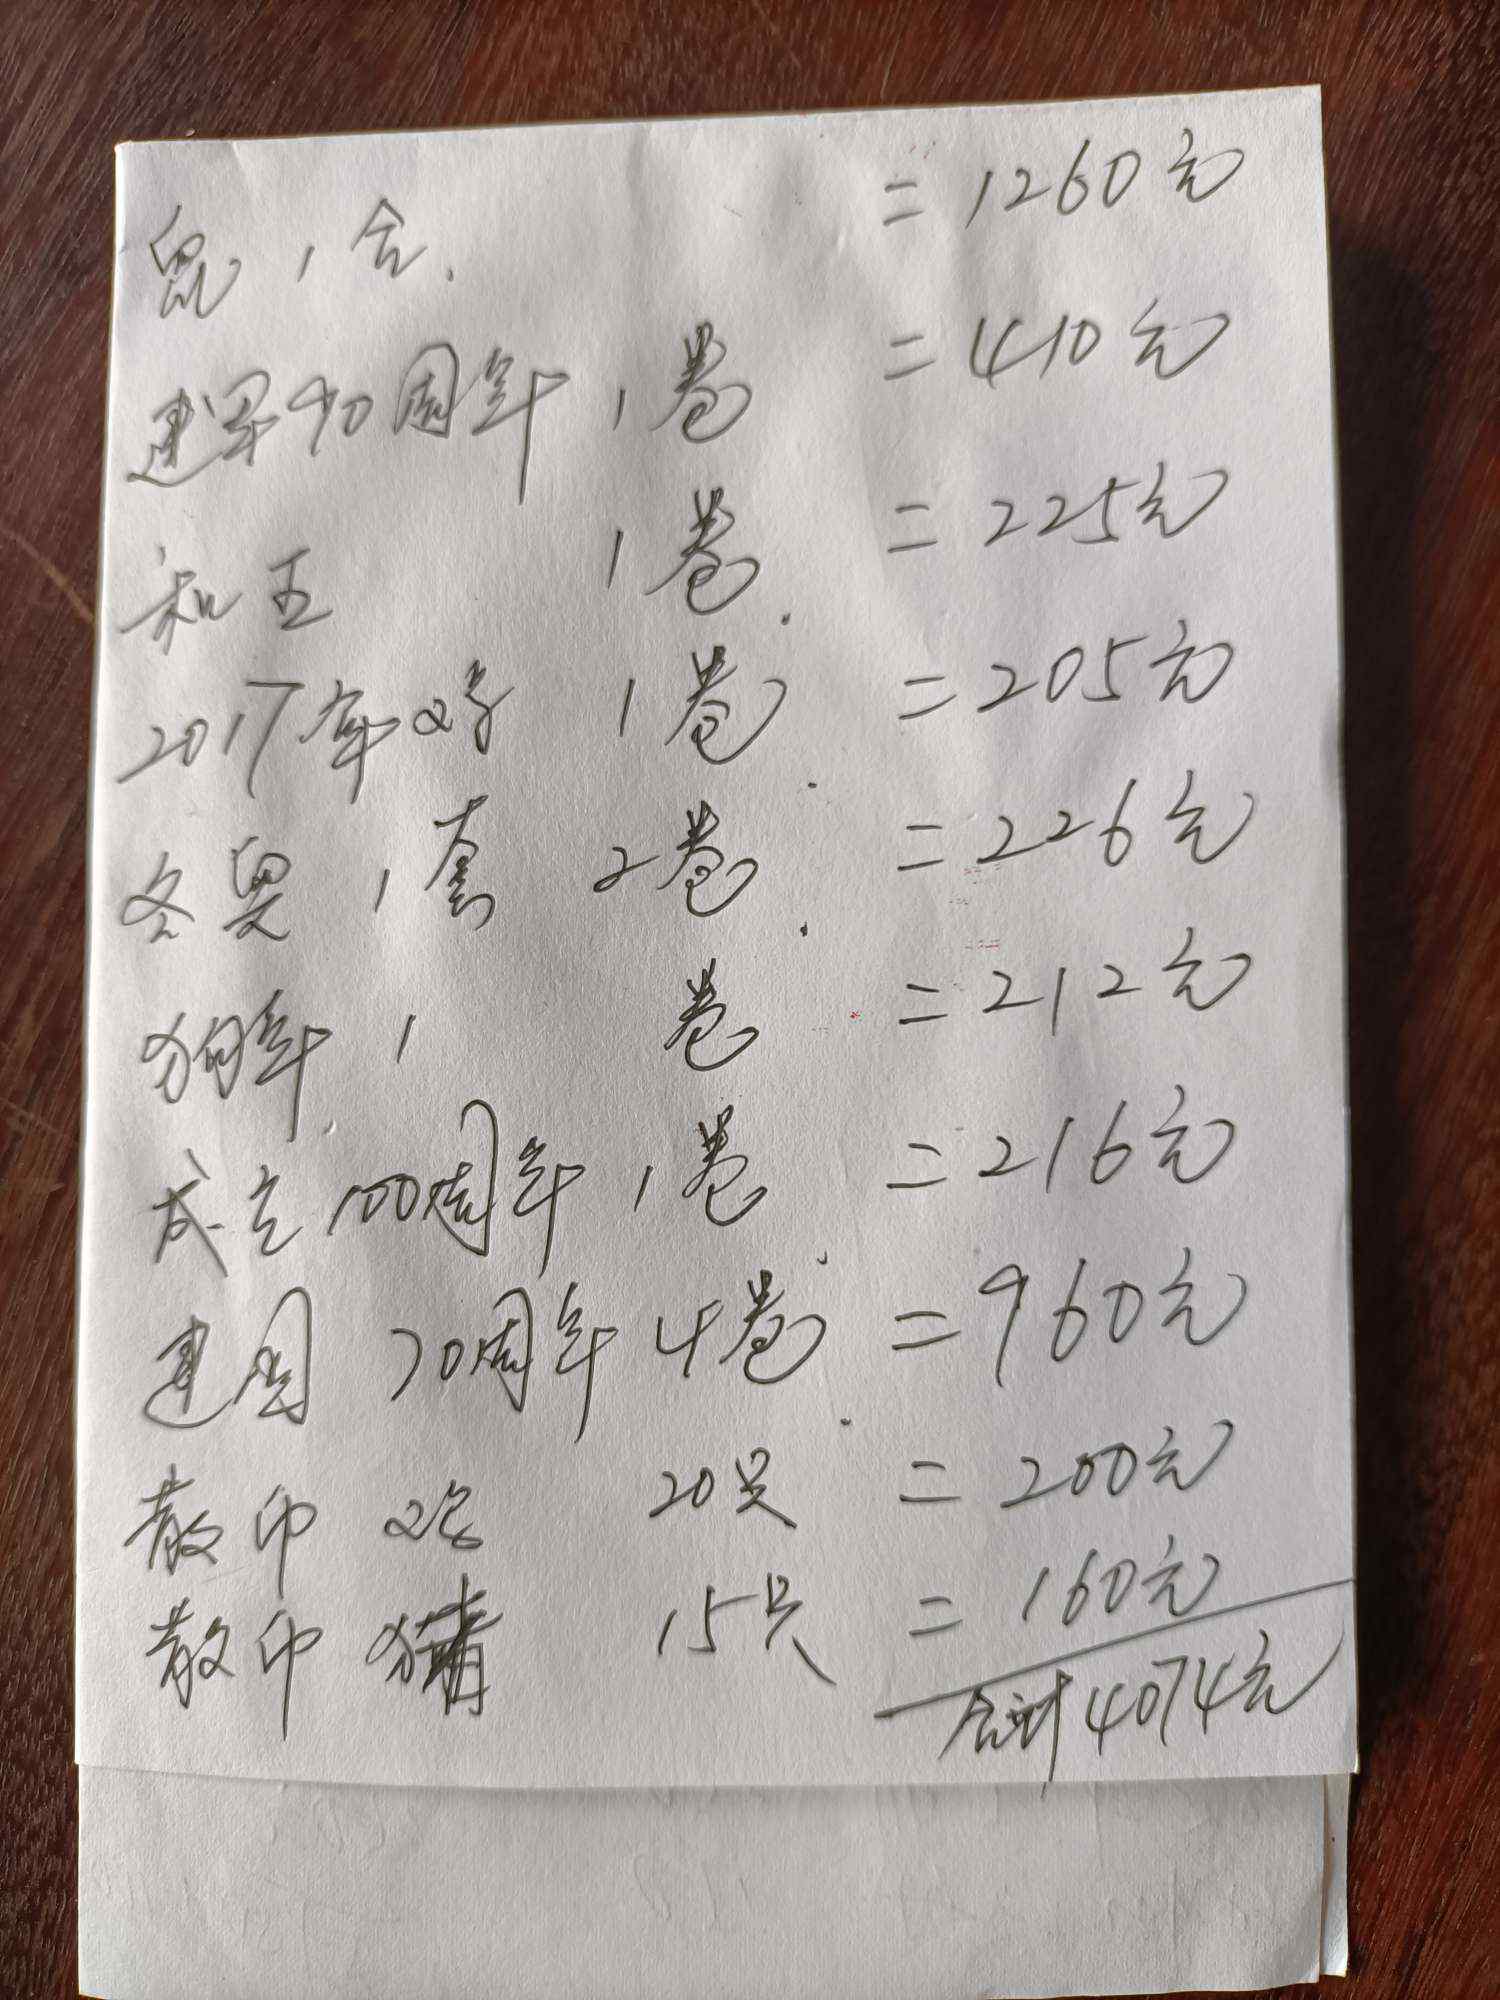 鼠 1 盒. = 1260元
建军90周年 1卷 = 410元
和五 1卷. = 225元
2017年鸡 1卷. = 205元
冬奥 1套 2卷. = 226元
狗年 1 卷 = 212元
成立100周年 1卷. = 216元
建国 70周年 4卷. = 960元
散币 鸡 20只 = 200元
散币 猪 15只 = 160元
合计4074元